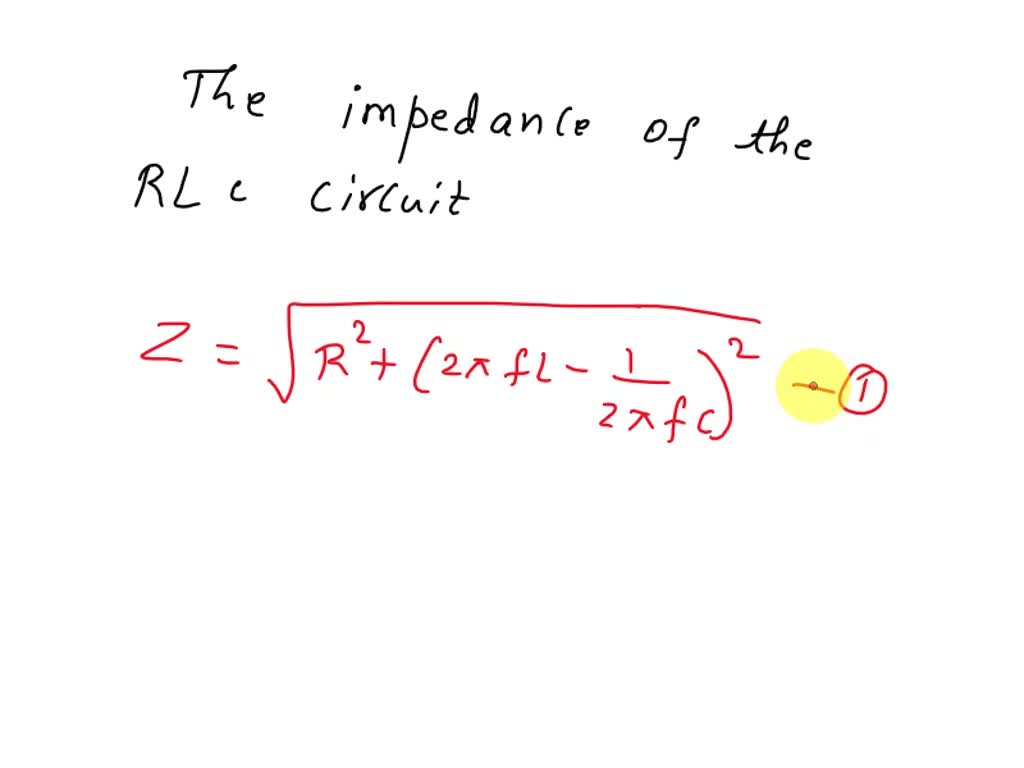 The impedance of the
RLC circuit
Z = √(R² + (2πfL - 1/(2πfC))²) — ①